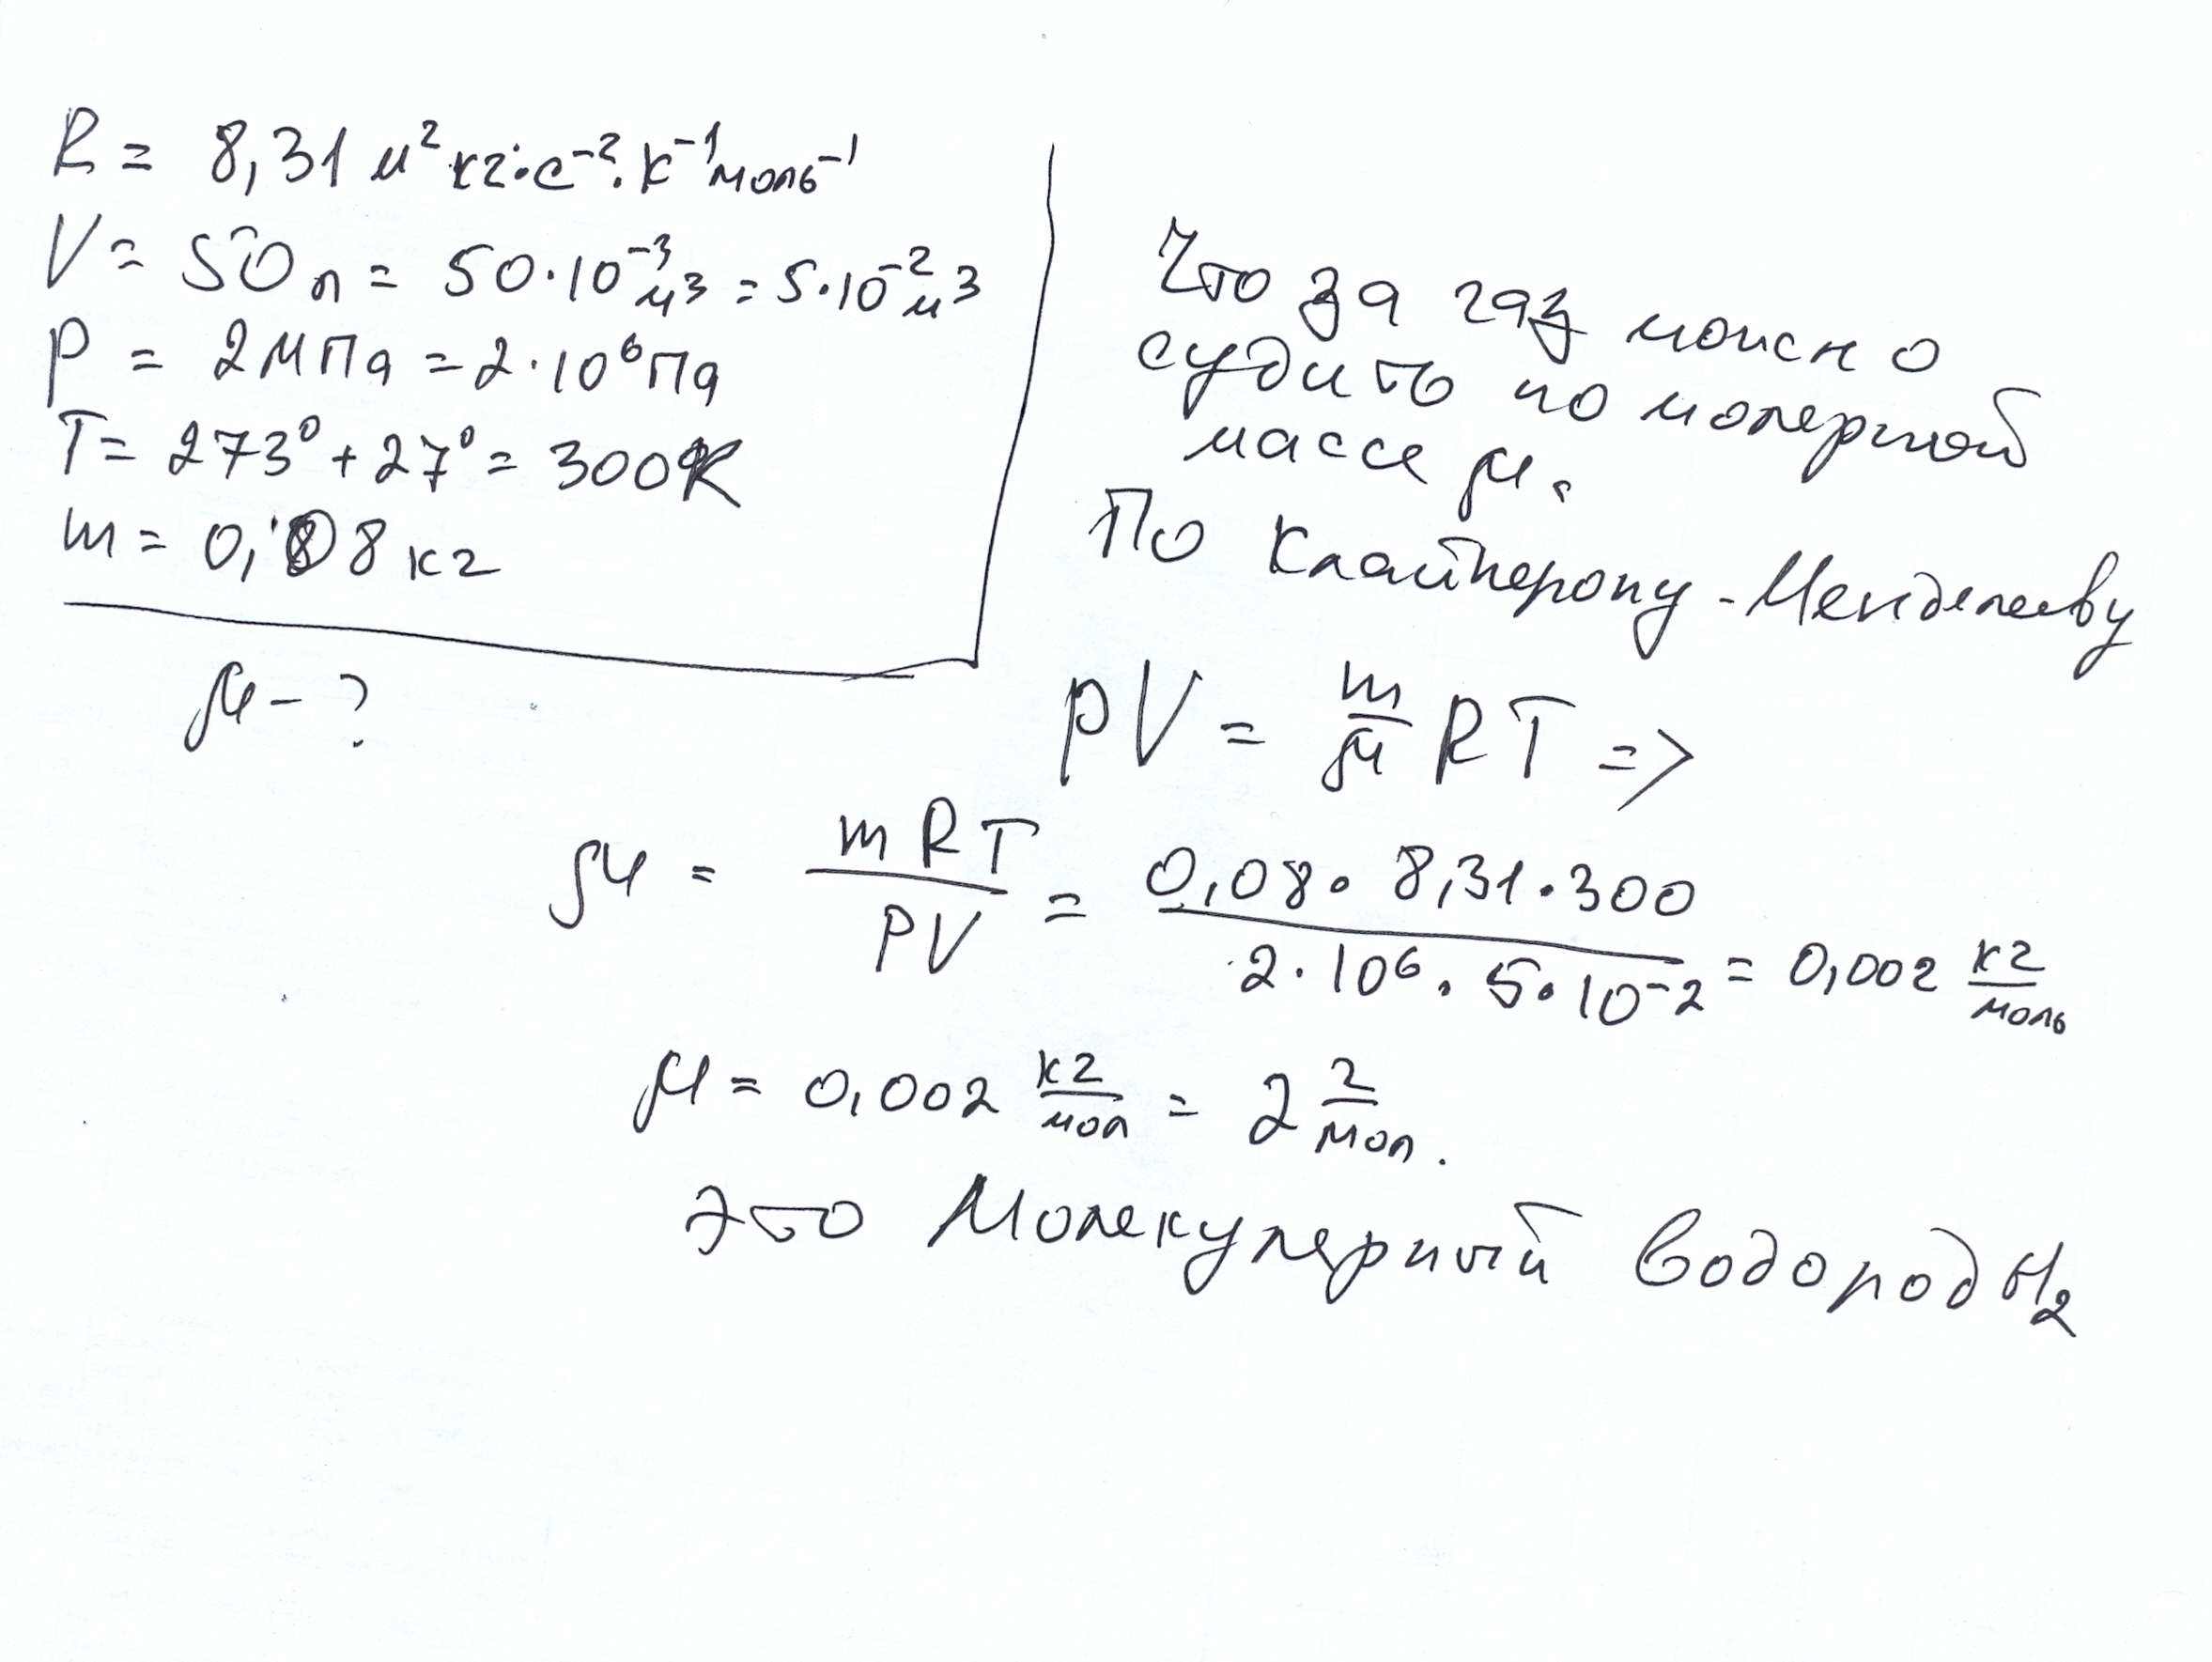 R = 8,31 м²·кг·с⁻²·К⁻¹моль⁻¹
V = 50 л = 50·10⁻³ м³ = 5·10⁻² м³
P = 2 МПа = 2·10⁶ Па
T = 273° + 27° = 300К
m = 0,08 кг
μ - ?
Что за газ можно
судить по молярной
массе μ.
По Клайперону - Менделееву
pV = m/μ RT =>
μ = mRT/PV = 0,08 · 8,31 · 300/2·10⁶ · 5·10⁻² = 0,002 кг/моль
μ = 0,002 кг/мол = 2 г/мол.
Это Молекулярный водород H₂